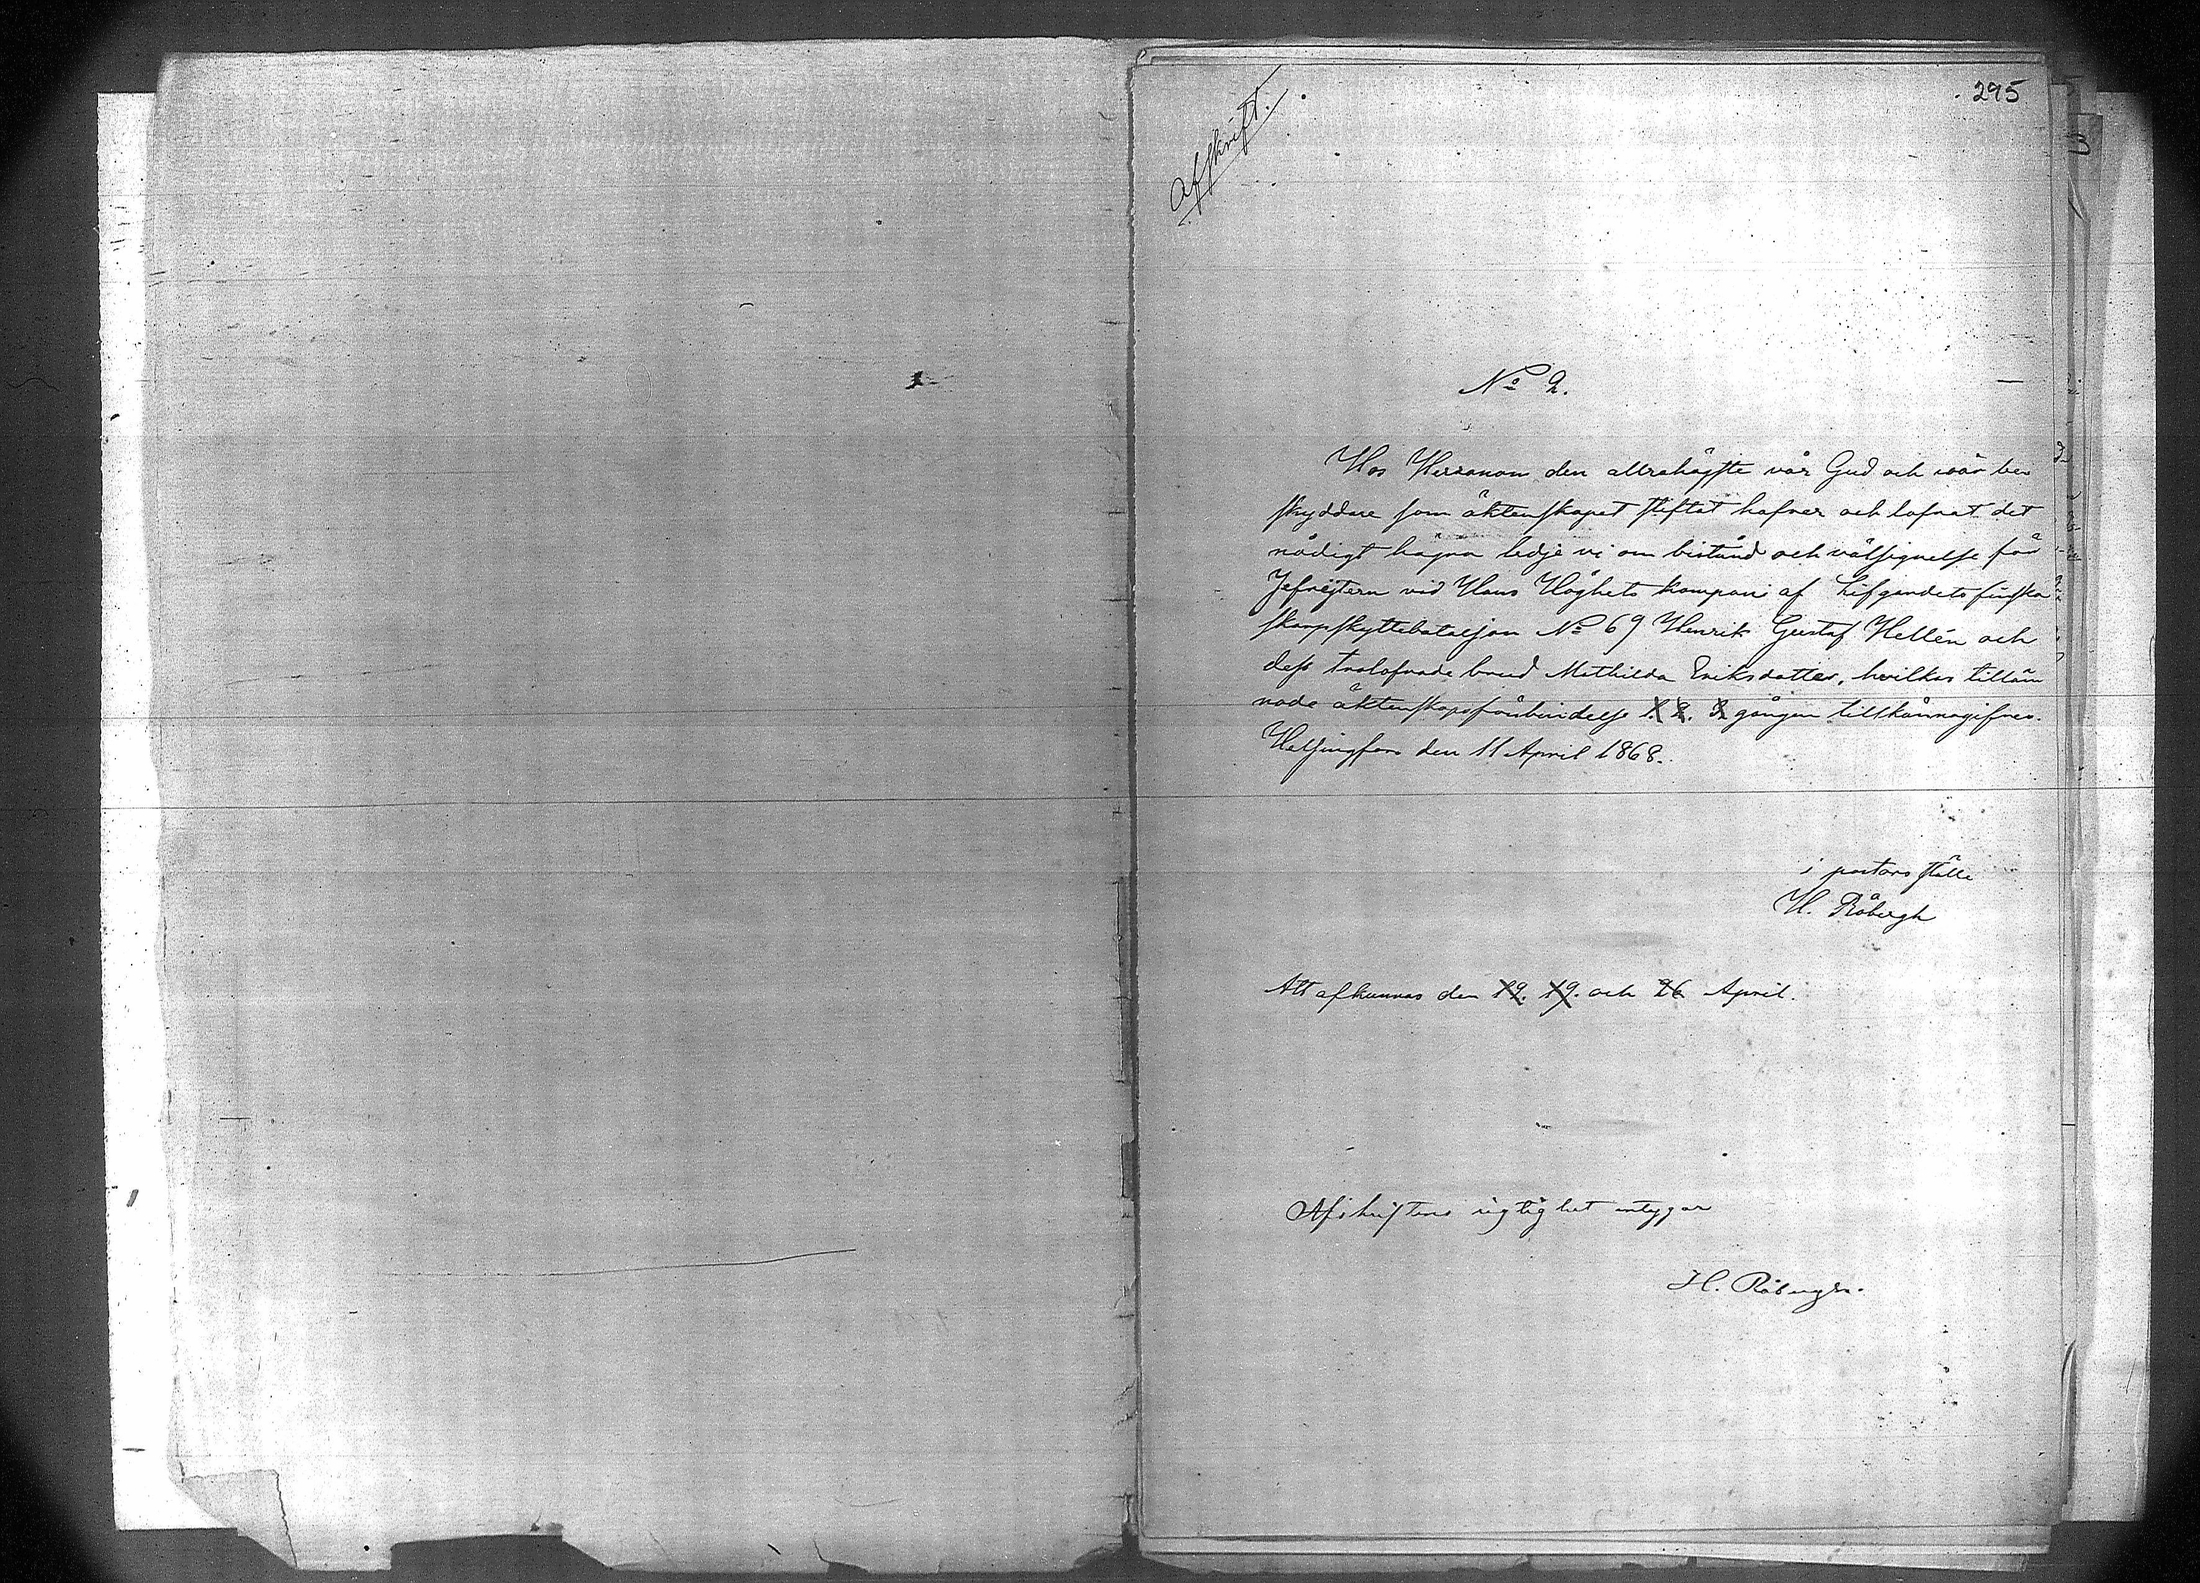 295
Afskrift.
No 2.
Hos Herranom den allrahögste vår Gud och vår be
skyddare som äktenskapet stiftat hafver och lofvat det
nådigt hägna bedje vi om bistånd och välsignelse för
Jefrejtern vid Hans Höghets kompani af Lifgardets finska
skarpskyttebataljon No 69 Henrik Gustaf Hellén och
dess trolofvade brud Mathilda Eriksdotter, hvilkas tilläm
nade äktenskapsförbindelse 1. 2. 3 gången tillkännagifves.
Helsingfors den 11 April 1868.
i pastors ställe
H. Råbergh
Att afkunnas den 12. 19. och 26 April.
Afskriftens rigtighet intygar
H. Råbergh.